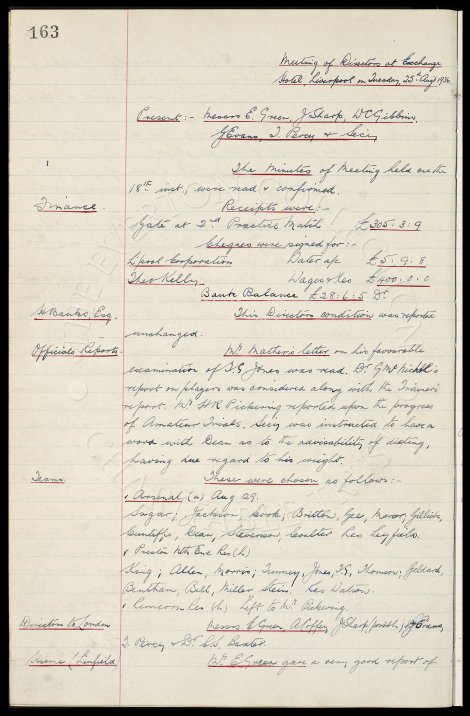 163
Meeting of Directors at Exchange
Hotel, Liverpool on Tuesday, 25th Augt 1936.
Present :- Messrs E. Green, J Sharp, W C Gibbins,
J Evans, T. Percy & Secy
The Minutes of Meeting held on the
18th inst., were read & confirmed.
Finance. Receipts were :-
Gate at 2nd Practice Match £305. 3. 9
Cheques were signed for :-
Lpool Corporation Water a/c £5. 9. 8
Theo Kelly Wages & Exes £400. 0. 0
Bank Balance £28. 6. 5 Dr
H Banks, Esq. This Directors condition was reported
unchanged.
Officials Reports. Mr Mather's letter on his favourable
examination of T.G Jones was read. Dr G Mc
report on players was considered along with the Trainer's
report. Mr H R Pickering reported upon the progress
of Amateur Trials. Secy was instructed to have a
word with Dean as to the advisability of dieting,
having due regard to his weight.
Teams These were chosen as follows :-
Arsenal (a) Aug 29.
Sagar; Jackson, Cook; Britton, Gee, Mercer; Gillick,
Cunliffe, Dean, Stevenson, Coulter. Res Leyfield.
Preston Nth End Res (h)
King; Allen, Morris; Tunney, Jones, T.G, Thomson; Geldard,
Bentham, Bell, Miller, Stein. Res Watson.
Res (h) Left to Mr Pickering.
Direction to London Messrs E Green A Coffey, J Sharp J Evans,
T. Percy & Dr C.S. Baxter.
(Linfield Mr E Green gave a very good report of